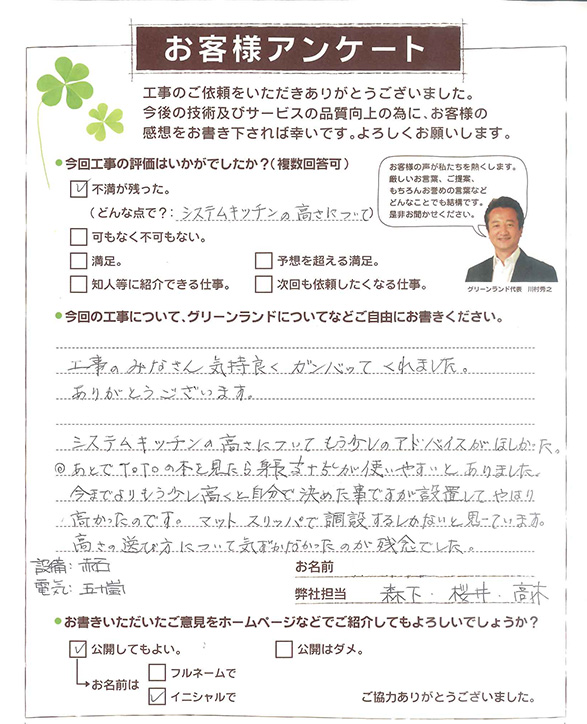 お客様アンケート
工事のご依頼をいただきありがとうございました。
今後の技術及びサービスの品質向上の為に、お客様の
感想をお書き下されば幸いです。よろしくお願いします。
●今回工事の評価はいかがでしたか？（複数回答可）
☑不満が残った。
（どんな点で？：システムキッチンの高さについて）
□可もなく不可もない。
□満足。 □予想を超える満足。
□知人等に紹介できる仕事。 □次回も依頼したくなる仕事。
お客様の声が私たちを熱くします。
厳しいお言葉、ご提案、
もちろんお誉めの言葉など
どんなことでも結構です。
是非お聞かせください。
グリーンランド代表 川村秀之
●今回の工事について、グリーンランドについてなどご自由にお書きください。
工事のみなさん 気持良く ガンバって くれました。
ありがとうございます。
システムキッチンの高さについて もう少しのアドバイスがほしかった。
◎あとでTOTOの本を見たら身長÷2+5が使いやすいと ありました
今までよりもう少し高くと自分で決めた事ですが設置して やはり
高かったのです。 マット スリッパで 調設するしかないと思っています。
高さの選び方について気ずかなかったのが 残念でした。
設備：赤石
電気：五十嵐
お名前
弊社担当 森下・桜井・高木
●お書きいただいたご意見をホームページなどでご紹介してもよろしいでしょうか？
☑公開してもよい。 □公開はダメ。
お名前は □フルネームで
☑イニシャルで
ご協力ありがとうございました。